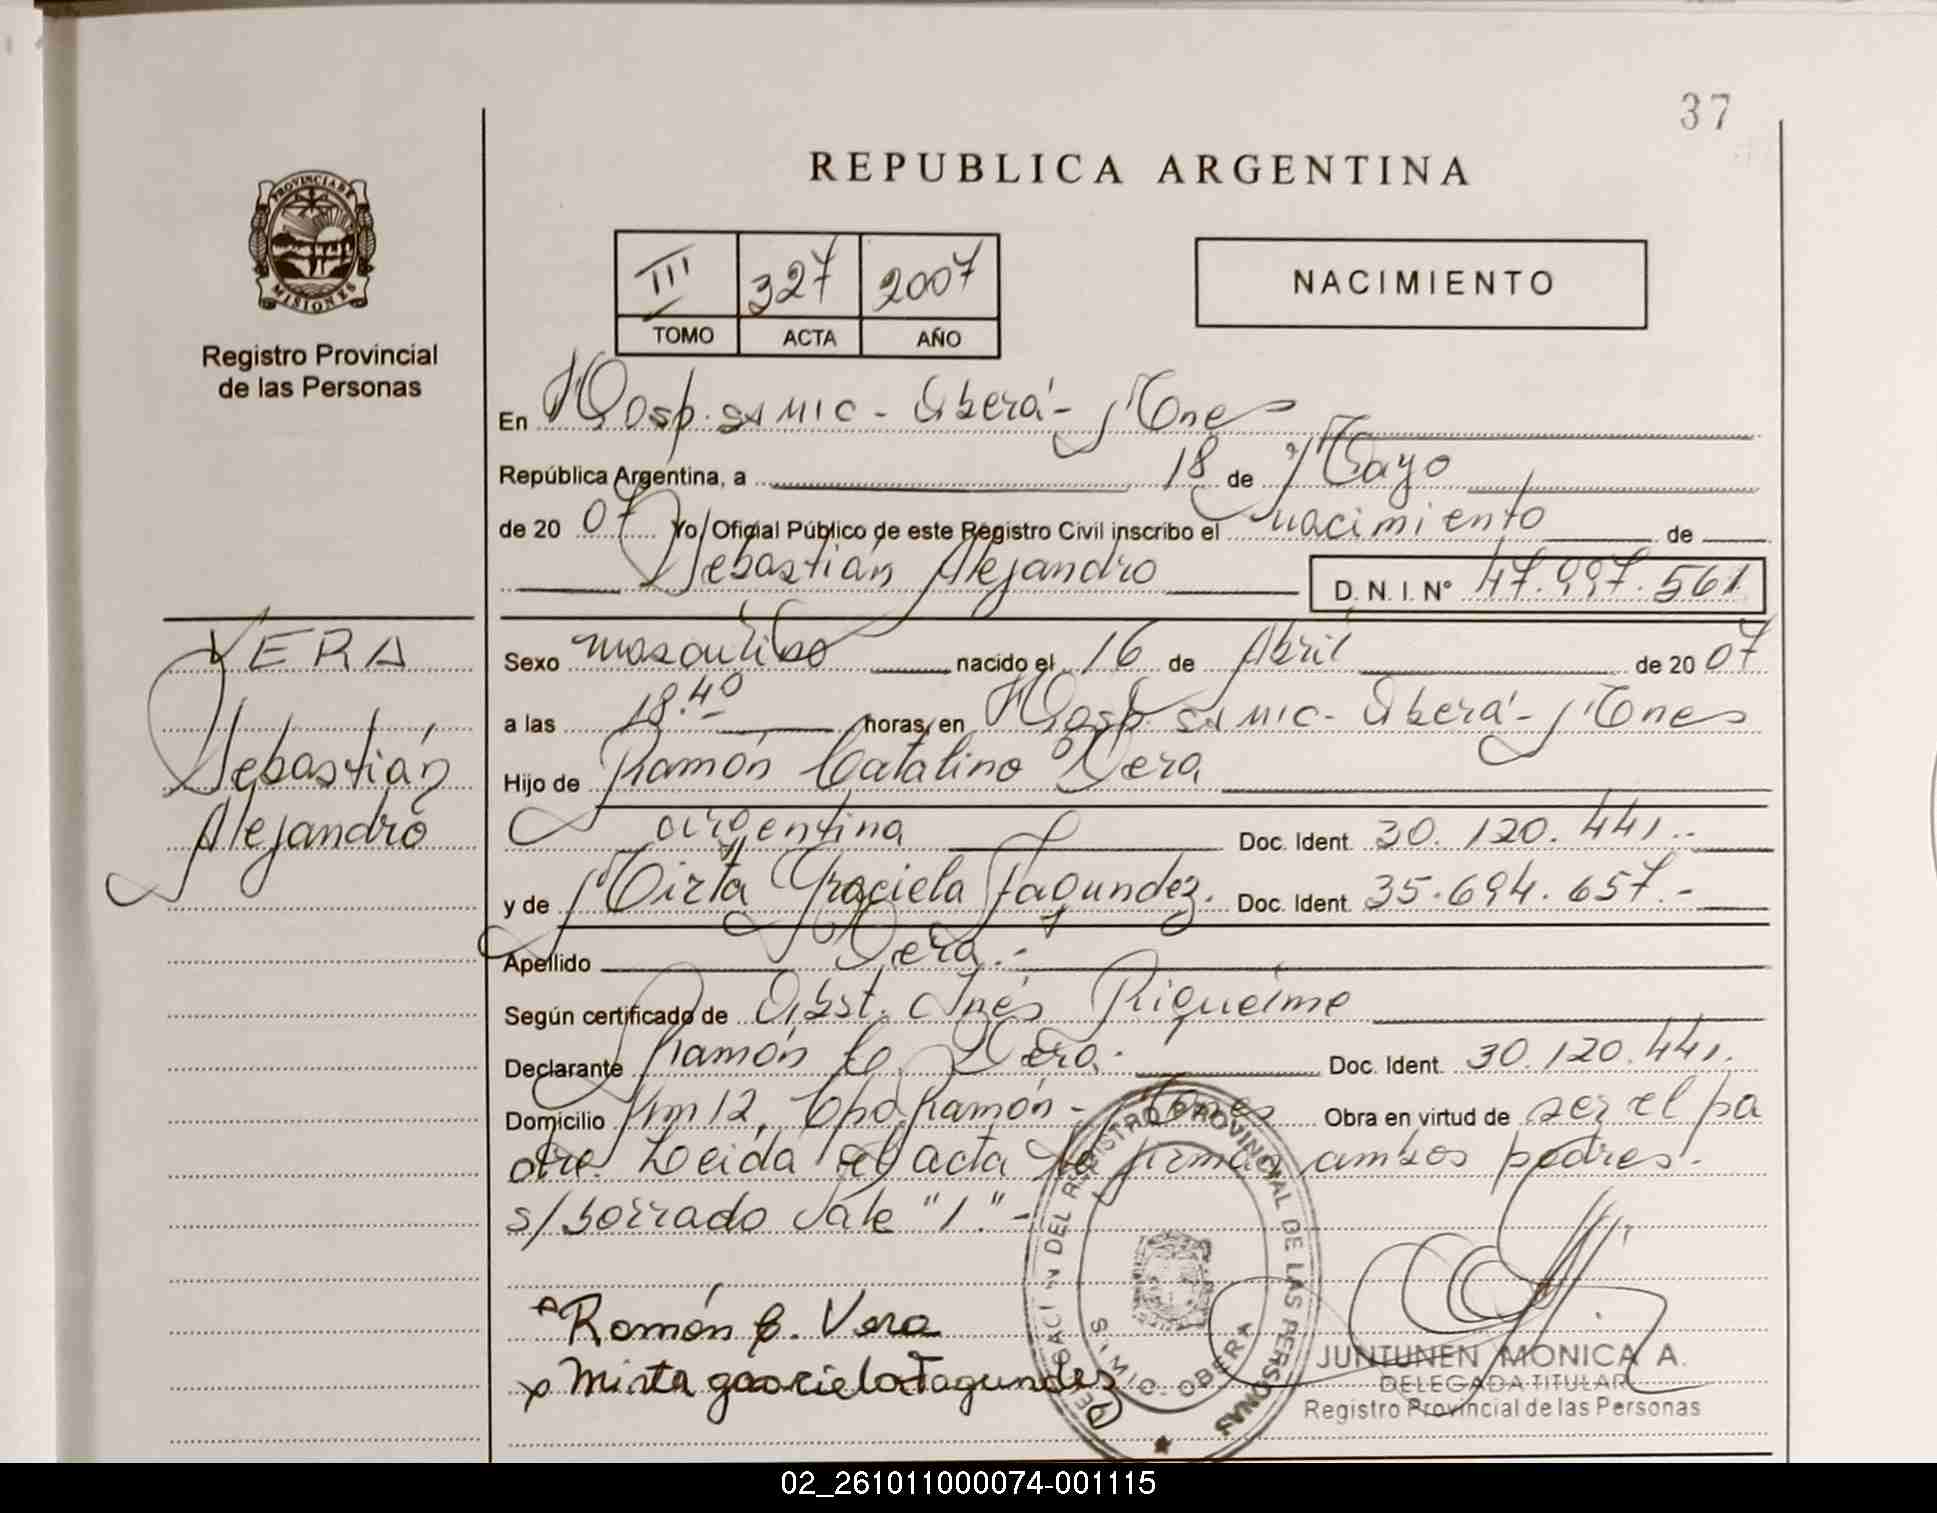 37
REPUBLICA ARGENTINA
PROVINCIA DE
MISIONES
III 327 2007
TOMO ACTA AÑO
NACIMIENTO
Registro Provincial
de las Personas
En Hosp. SAMIC - Oberá - Mnes
República Argentina, a 18 de Mayo
de 20 07 Yo, Oficial Público de este Registro Civil inscribo el nacimiento de
Sebastián Alejandro D. N. I. Nº 47.997.561
VERA
Sebastián
Alejandro
Sexo masculino nacido el 16 de Abril de 20 07
a las 18.40 horas, en Hosp. SAMIC - Oberá - Mnes
Hijo de Ramón Catalino Vera
argentina Doc. Ident. 30.120.441.-
y de Mirta Graciela Fagundez. Doc. Ident. 35.694.657.-
Apellido Vera.-
Según certificado de Obst. Inés Riquelme
Declarante Ramón C. Vera. Doc. Ident. 30.120.441.
Domicilio Km 12, Cpo. Ramón - Mnes Obra en virtud de ser el pa
dre. Leida el acta la firman ambos padres.
s/borrado vale "1." -
Ramón C. Vera
x Mirta graciela Fagundez
DEL REGISTRO PROVINCIAL DE LAS PERSONAS
OBERA
JUNTUNEN MONICA A.
DELEGADA TITULAR
Registro Provincial de las Personas
02_261011000074-001115